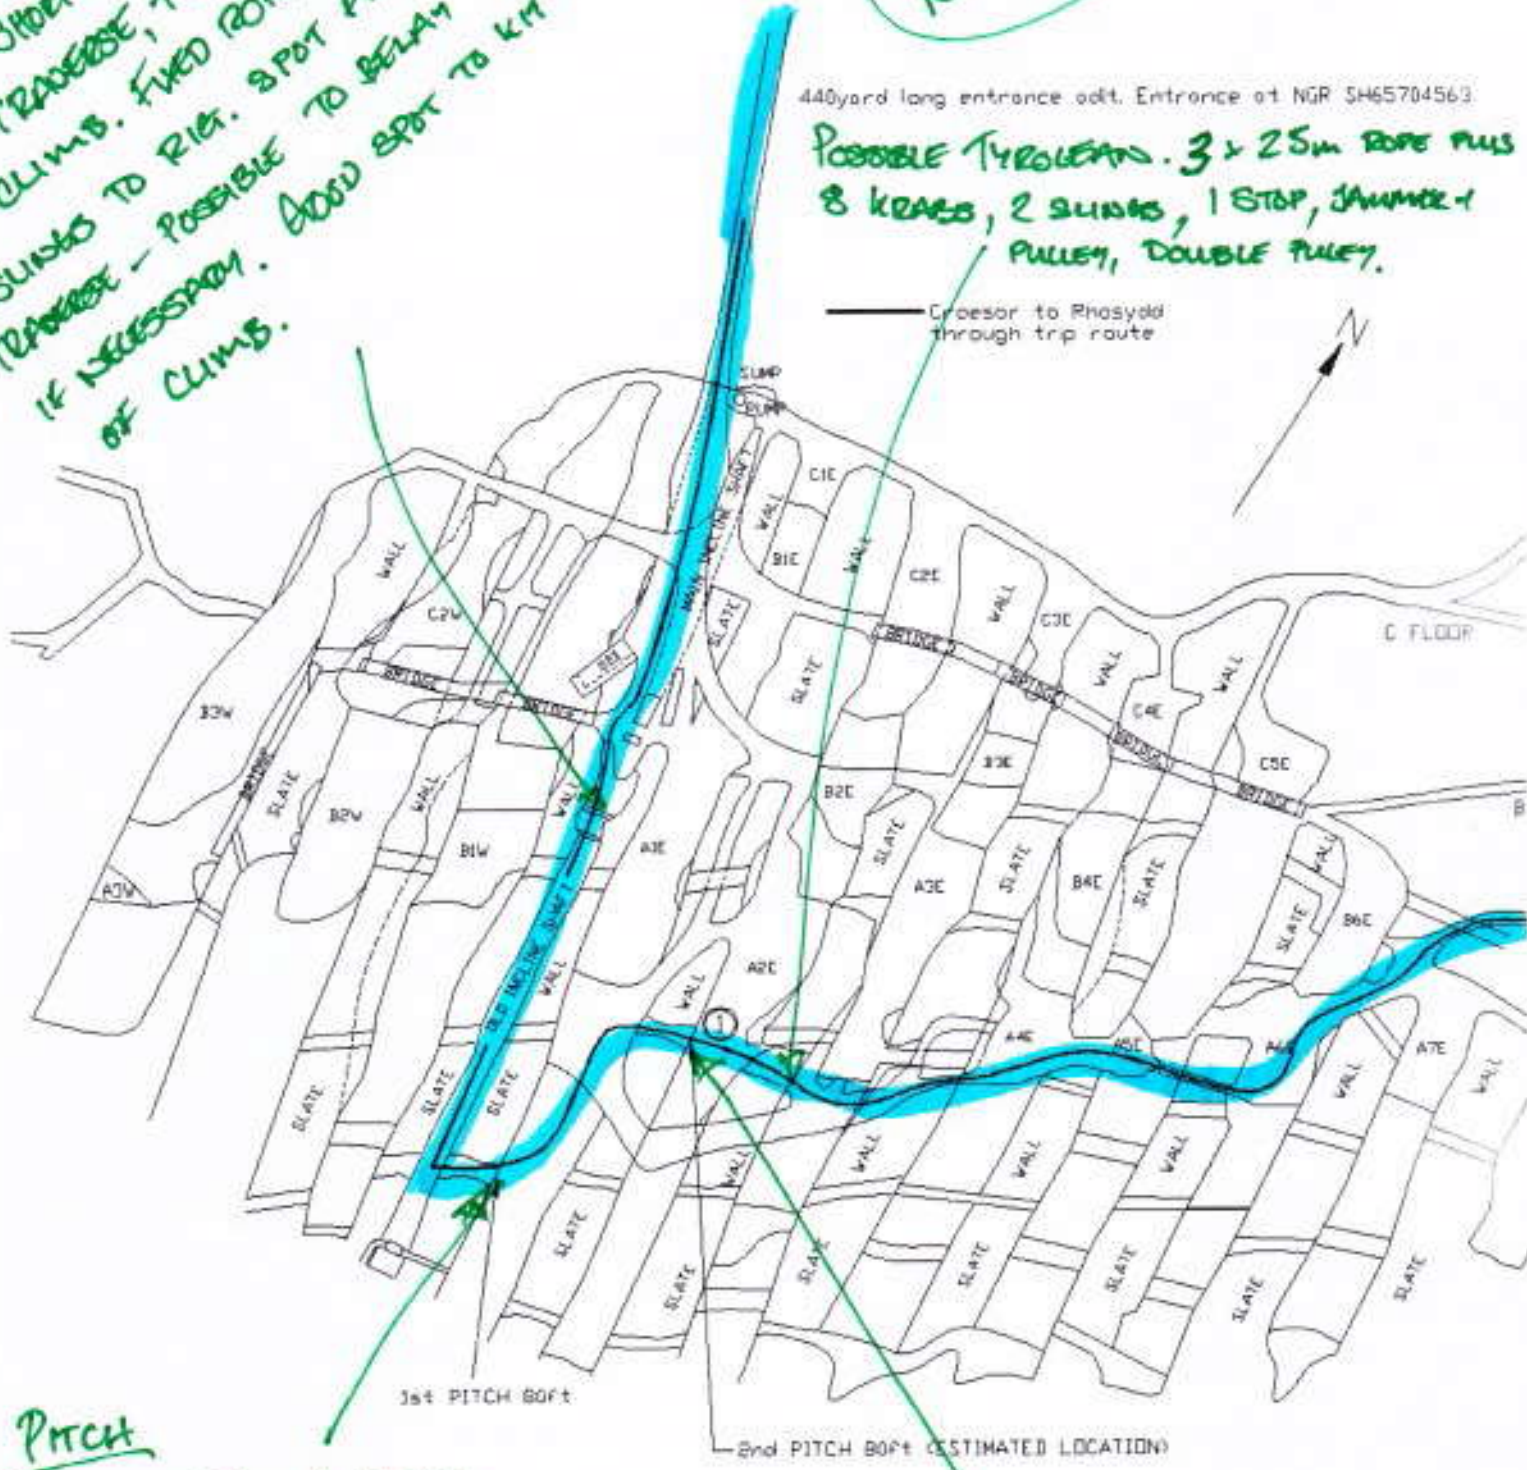 TRAVERSE,
CLIMB. FIXED
SLINGS TO RIG. SPOT
TRAVERSE - POSSIBLE TO BELAY
IF NECESSARY. GOOD SPOT TO
OF CLIMB.
440yard long entrance adit. Entrance at NGR SH65704563
POSSIBLE TYROLEAN. 3 x 25m ROPE PLUS
8 KRABS, 2 SLINGS, 1 STOP, JAMMER +
PULLEY, DOUBLE PULLEY.
Croesor to Rhosydd
through trip route
N
SUMP
SUMP
MAIN INCLINE SHAFT
WALL
C1E
B1E
WALL
C2E
WALL
C3E
WALL
C4E
WALL
C5E
C FLOOR
WALL
C2W
SLATE
SLATE
BRIDGE
BRIDGE
BRIDGE
BRIDGE
BRIDGE
BRIDGE
B3W
BRIDGE
SLATE
B2W
WALL
B1W
WALL
A1E
B2E
SLATE
B3E
A3E
SLATE
B4E
SLATE
WALL
SLATE
B6E
A3W
OLD INCLINE SHAFT
WALL
WALL
A2E
1
A4E
A5E
A6E
A7E
WALL
WALL
SLATE
SLATE
SLATE
WALL
WALL
WALL
WALL
SLATE
SLATE
SLATE
SLATE
SLATE
SLATE
SLATE
1st PITCH 80ft
2nd PITCH 80ft (ESTIMATED LOCATION)
PITCH